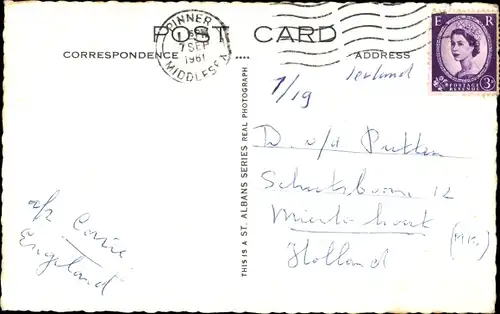 POST CARD
PINNER
7 SEP
1961
MIDDLESEX
E R
POSTAGE REVENUE
3D
CORRESPONDENCE
ADDRESS
7/19
THIS IS A ST. ALBANS SERIES REAL PHOTOGRAPH
D. v/d Putten
12
Holland
England